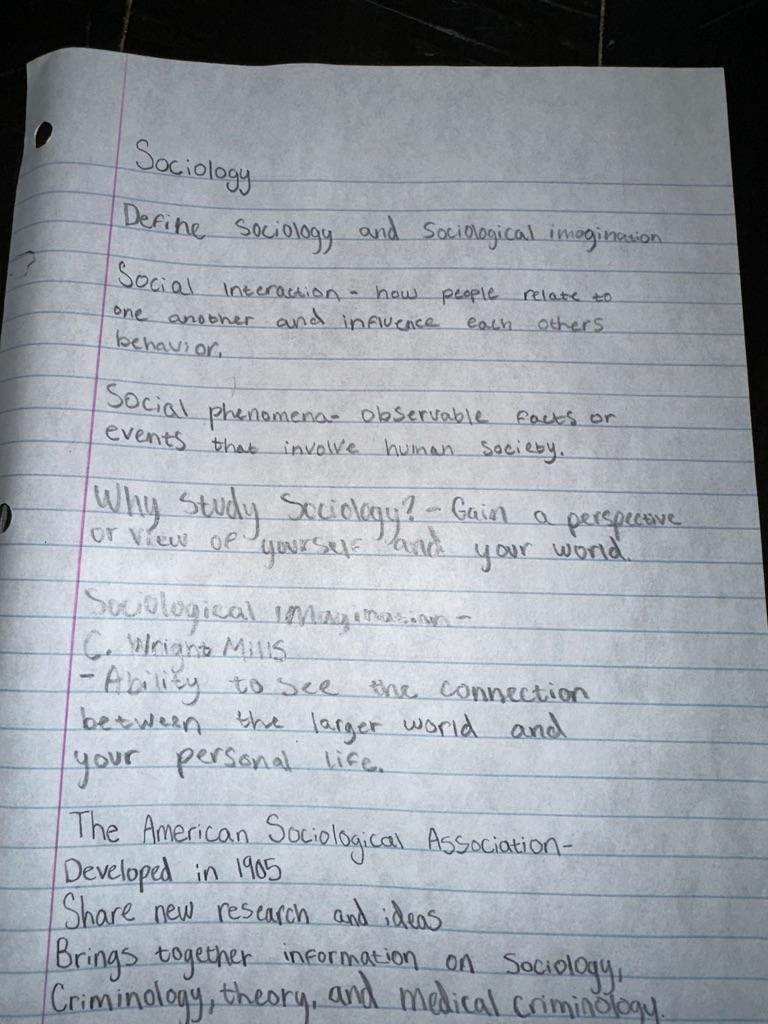 Sociology
Define sociology and sociological imagination
Social Interaction - how people relate to
one another and influence each others
behavior.
Social phenomena- observable facts or
events that involve human society.
Why Study Sociology? - Gain a perspective
or view of yourself and your world.
Sociological imagination -
C. Wright Mills
- Ability to see the connection
between the larger world and
your personal life.
The American Sociological Association-
Developed in 1905
Share new research and ideas
Brings together information on Sociology,
Criminology, theory, and medical criminology.